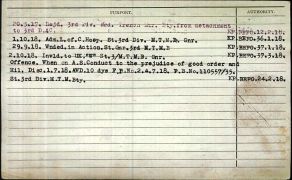 PURPORT. AUTHORITY.
20.3.17. Rejd. 3rd Div. Med. Trench Mtr. Bty. from detachment
to 3rd D.A.C. KP 12.2.18.
1.10.18. Adm. L. of C. Hosp. St. 3rd Div. M.T.M.B. Gnr. KP. BEPO.36.1.18.
29.9.18. Wnded.in Action. St.Gnr.3rd M.T.M.B KP. BEPO.37.1.18.
2.10.18. Invld.to UK. St 3/M.T.M.B. Gnr. KP. BEPO.37.3.18.
Offence. When on A.S.Conduct to the prejudice of good order and
Mil. Disc.1.7.18. AWD.10 dys F.P.No.2.4.7.18. P.B.No.110557/35.
St.3rd Div.M.T.M.Bty. KP. BEPO.24.2.18.